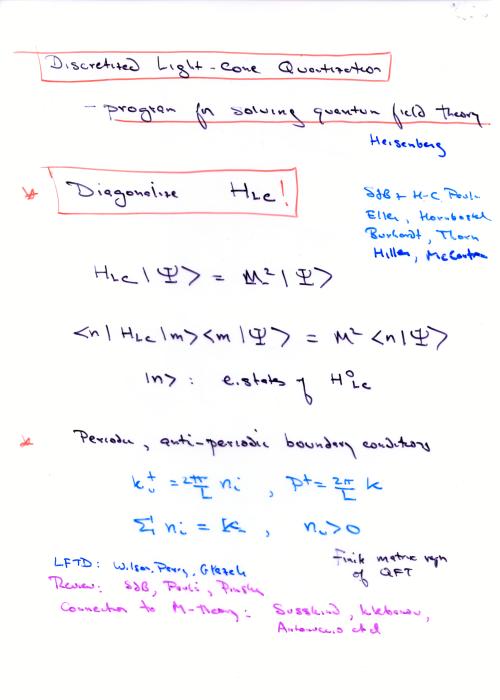 Discretized Light-Cone Quantization
- program for solving quantum field theory
Heisenberg
* Diagonalize H_LC!
SJB + H-C. Pauli
Eller, Hornbostel
Burkardt, Thorn
Hiller, McCartor
H_LC |Ψ> = M² |Ψ>
<n| H_LC |m><m|Ψ> = M² <n|Ψ>
|n> : e.states of H⁰_LC
* Periodic, anti-periodic boundary conditions
k_i⁺ = 2π/L n_i , P⁺ = 2π/L K
Σ n_i = K , n_i > 0
Finite matrix repn
of QFT
LFTD: Wilson, Perry, Glazek
Review: SJB, Pauli, Pinsky
Connection to M-Theory: Susskind, Klebanov,
Antonuccio et al